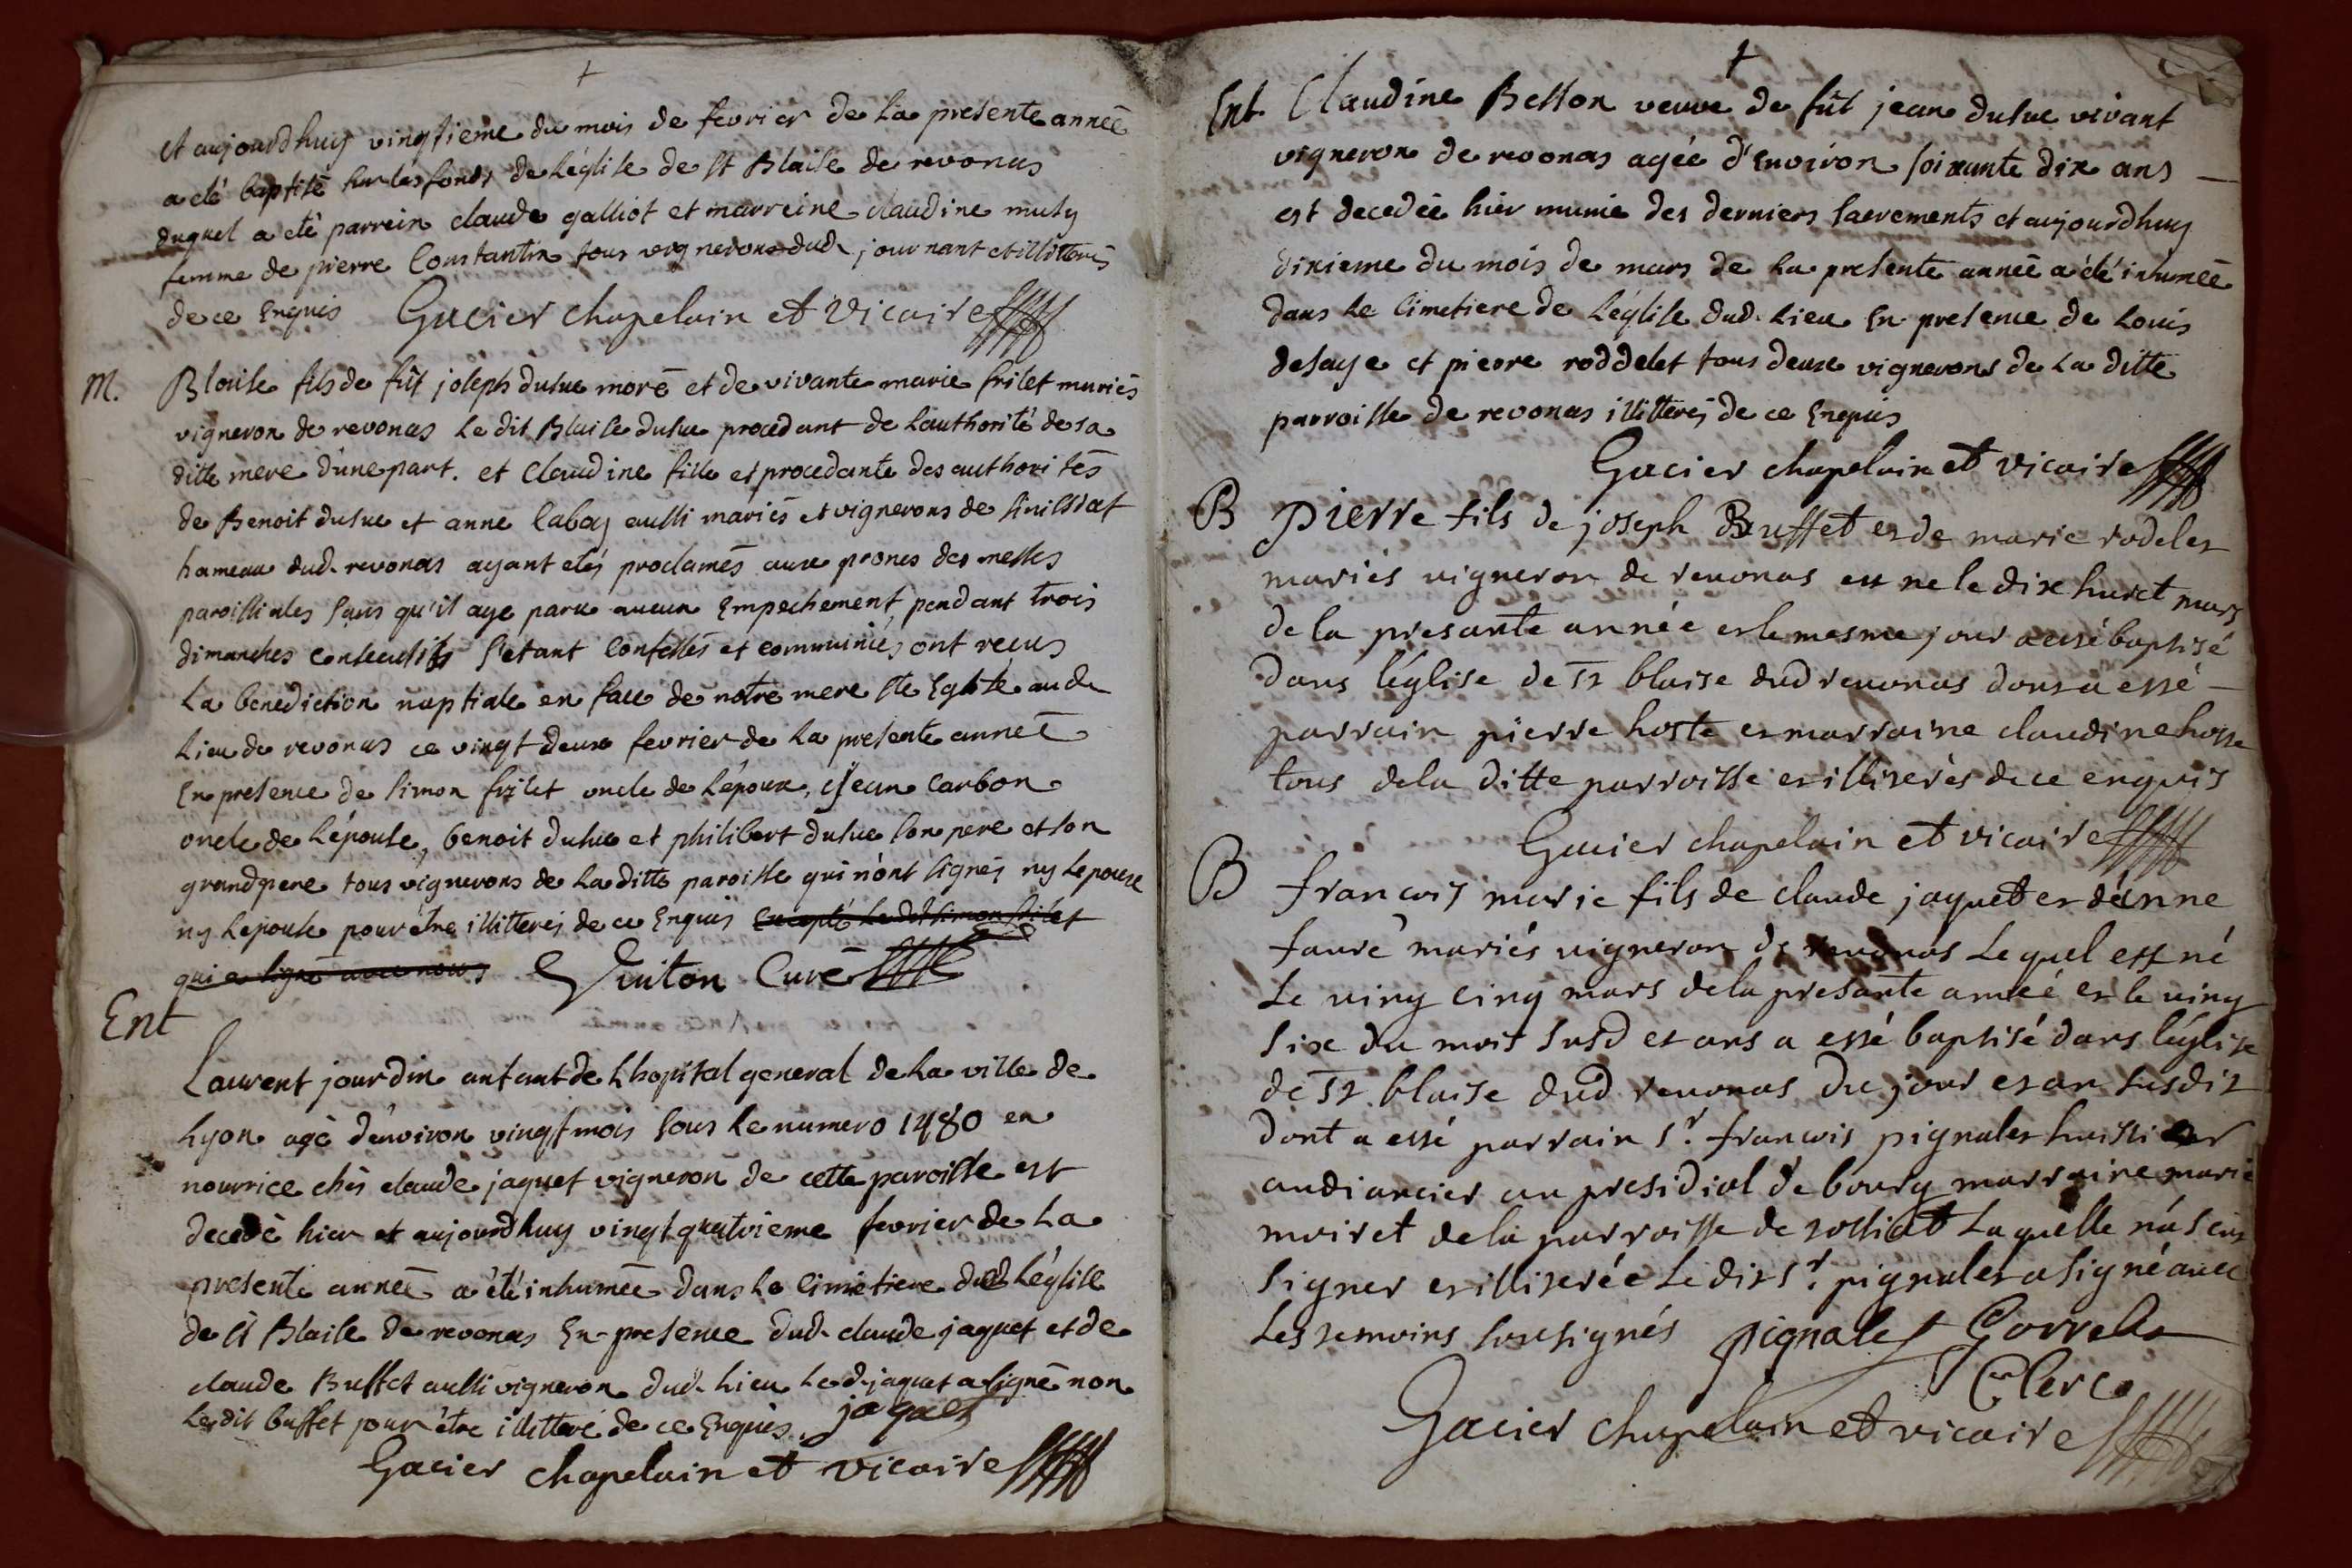 et aujourdhuy vingtieme du mois de fevrier de la presente année
a eté baptisé sur les fonds de l'église de st Blaise de revonas
duquel a eté parrein claude galliot et marreine claudine muty
femme de pierre Constantin tous vignerons dud. journant et illitterés
de ce Enquis Gacier chapelain et vicaire
M. Blaise fils de fût joseph dusuc moré et de vivante marie frilet mariés
vigneron de revonas le dit Blaise dusuc procedant de l'authorité de sa
ditte mere d'une part. et Claudine fille et procedante des authorités
de Benoit dusuc et anne labay aussi mariés et vignerons de
hameau dud. revonas ayant etés proclamés aux prones des messes
paroissiales sans qu'il aye paru aucun Empechement pendant trois
dimanches consecutifs s'etant confessés et communiés ont recus
La benediction nuptiale en face de notre mere ste Eglise au d.
Lieu de revonas ce vingt deux fevrier de la presente année
En presence de simon frilet oncle de l'epoux, et jean Carbon
oncle de l'épouse, benoit dusuc et philibert dusuc son pere et son
grandpere tous vignerons de la ditte paroisse qui n'ont signés ny l'epoux
ny l'epouse pour être illitterés de ce Enquis Excepté le dit simon frilet
qui a signé avec nous Guiton Curé
Ent
Laurent jourdin enfant de l'hopital general de la ville de
Lyon agé d'environ vingt mois sous le numero 1480 en
nourrice chés claude jaquet vigneron de cette paroisse est
decedé hier et aujourdhuy vingt quatrieme fevrier de la
presente année a été inhumée dans le cimetiere dud L'église
de st Blaise de revonas En presence dud. claude jaquet et de
claude Buffet aussi vigneron dud. Lieu Le d. jaquet a signé non
Le dit buffet pour être illitteré de ce Enquis. jaquet
Gacier chapelain et vicaire
Ent. Claudine Besson veuve de fût jean dusuc vivant
vigneron de revonas agée d'Environ soixante dix ans
est decedée hier munie des derniers sacrements et aujourdhuy
dixieme du mois de mars de la presente année a été inhumée
dans le Cimetiere de L'église dud. Lieu En presence de Louis
desaye et pierre roddelet tous deux vignerons de La ditte
parroisse de revonas illitterés de ce Enquis
Gacier chapelain et vicaire
B Pierre fils de joseph Buffet et de marie rodelet
mariés vigneron de revonas est né le dix huict mars
de la presante année et le mesme jour a esté baptisé
dans l'église de st blaise dud revonas dont a esté
parrain pierre hoste et marraine claudine hoste
tous de la ditte parroisse et illiterés de ce enquis
Gacier chapelain et vicaire
B francois marie fils de claude jaquet et d'anne
faure mariés vigneron de revonas Lequel est né
Le ving cinq mars de la presante année et le ving
six du mois susd et ans a esté baptisé dans l'église
de st. blaise dud revonas du jour et an susdit
dont a esté parrain sr. francois pignalet huissier
audiancier au presidial de bourg marraine marie
moiret de la parroisse de tossiat Laquelle n'a sceu
signer et illiterée Le dit sr. pignalet a signé avec
Les temoins soussignés pignalet Gorrelet
Clerc
Gacier chapelain et vicaire